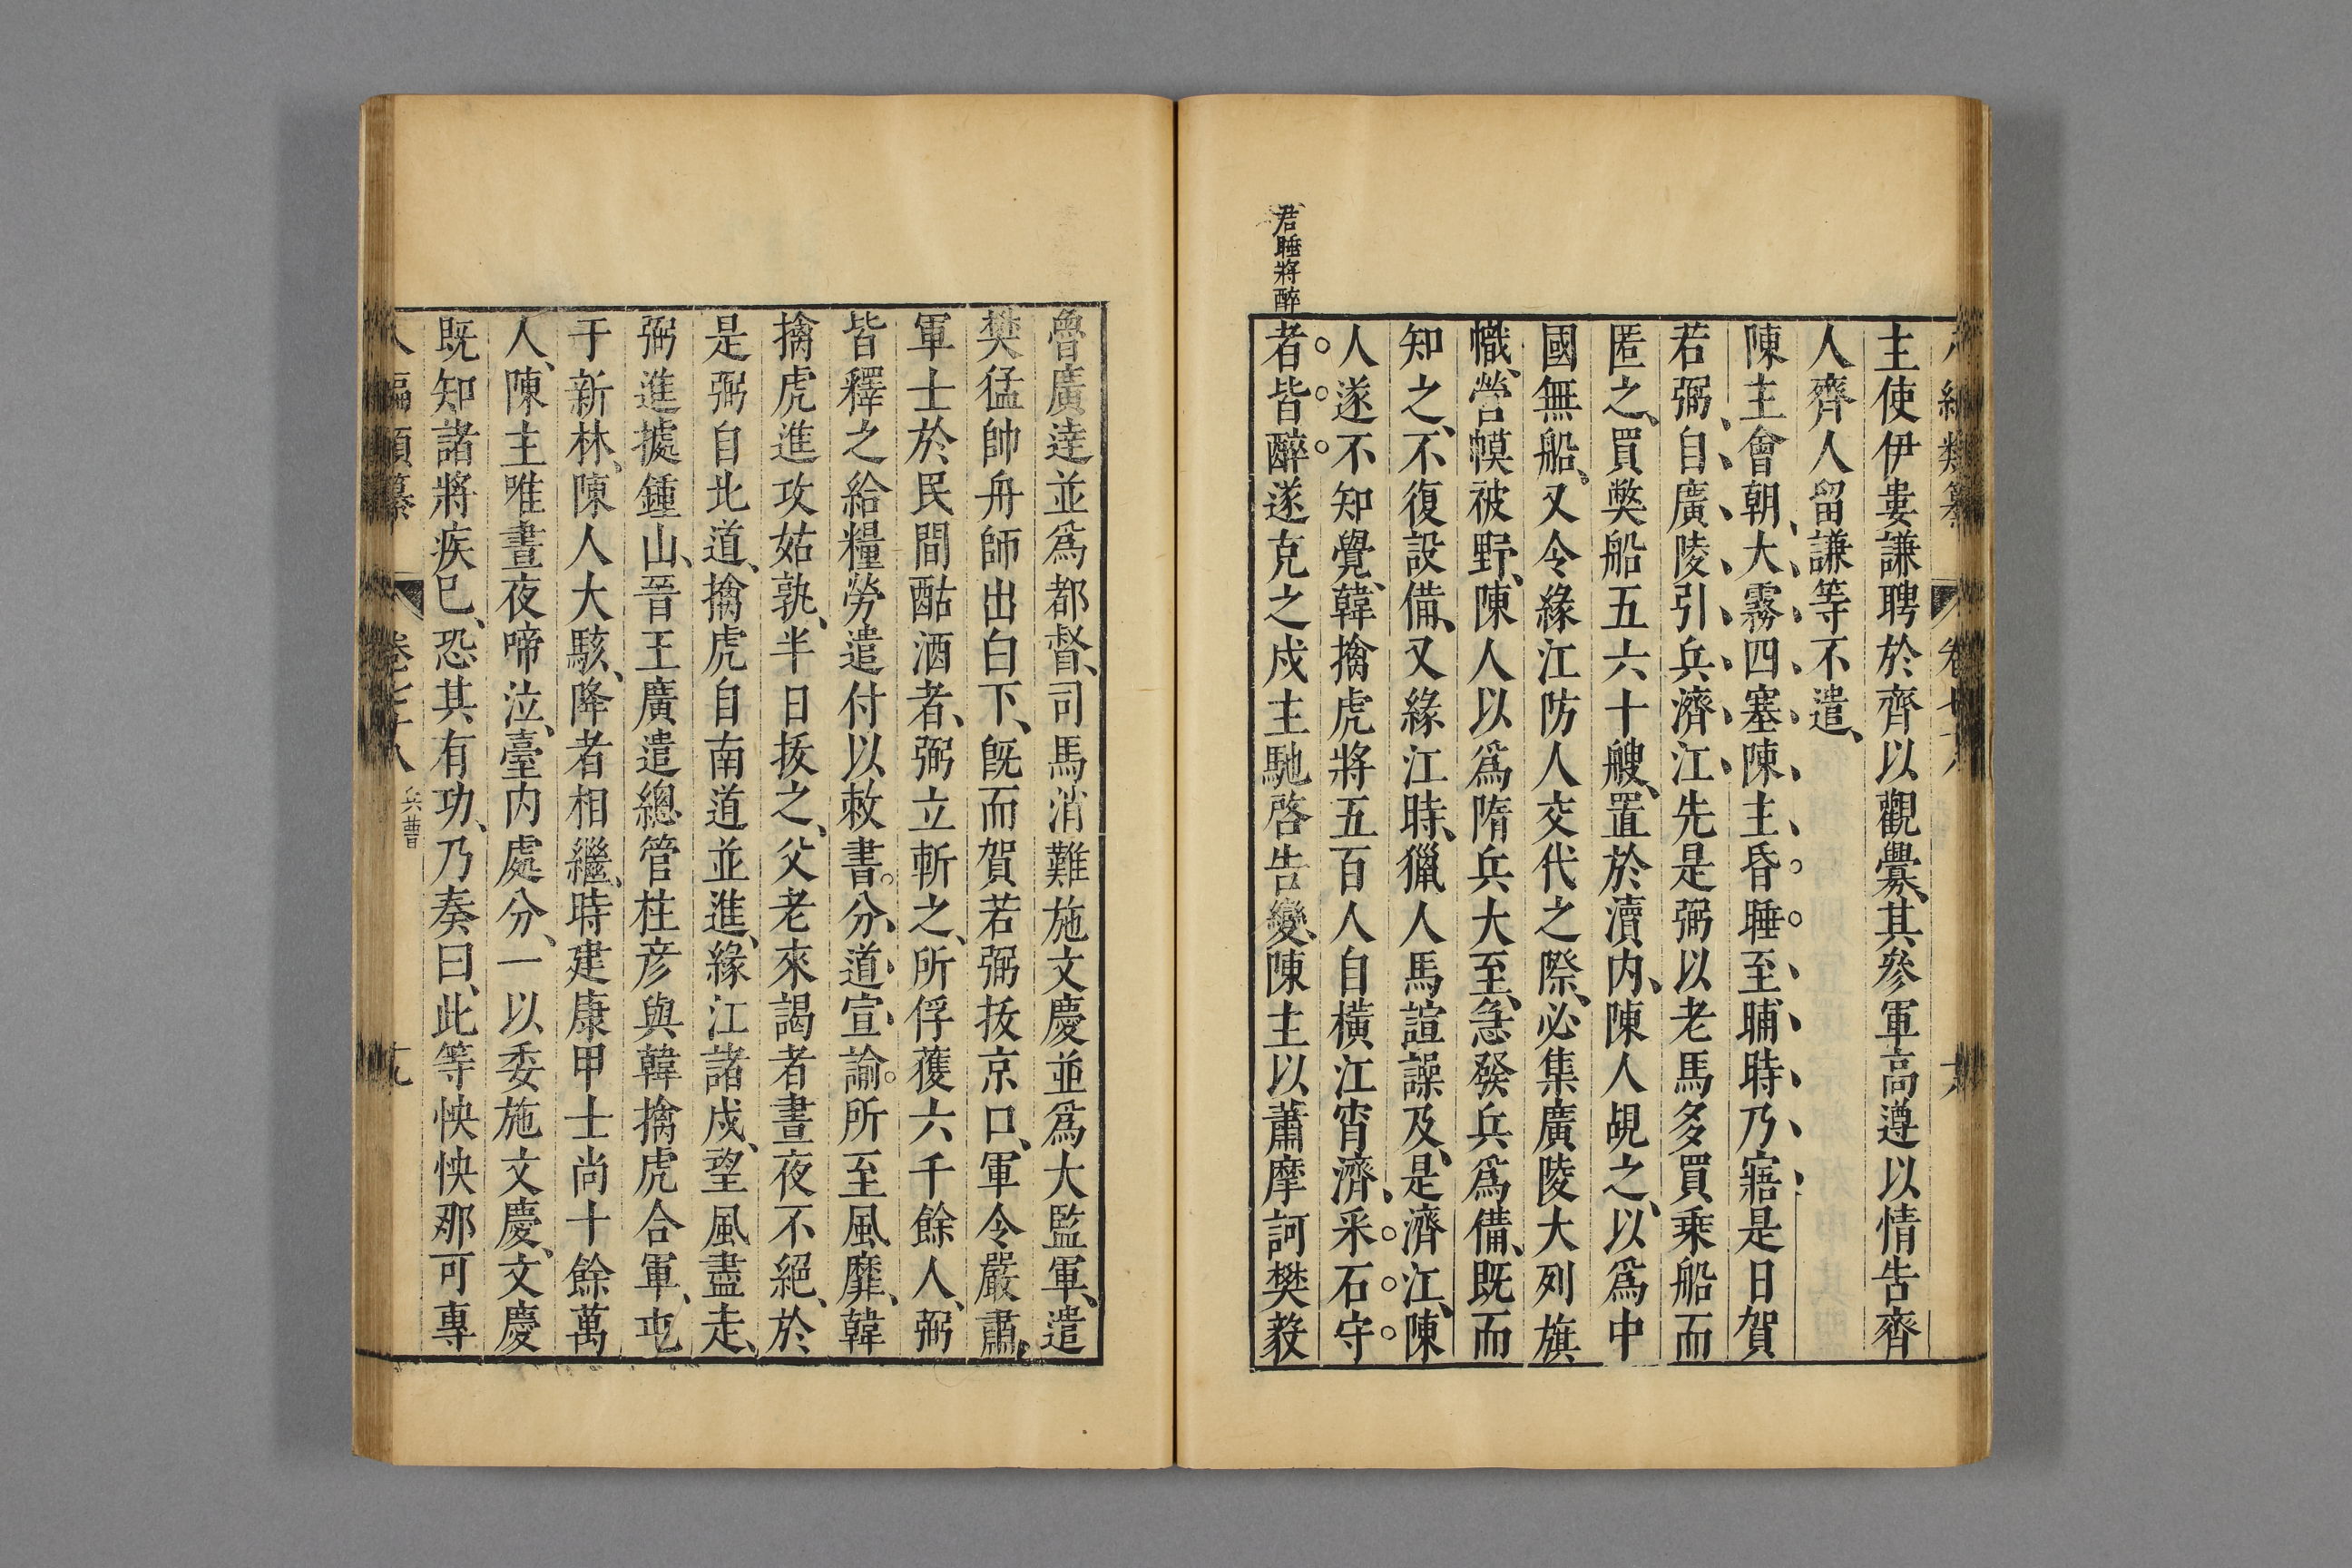 主使伊婁謙聘於齊以觀釁、其參軍高遵以情告齊
人齊人留謙等不遣、
陳主會朝、大霧四塞、陳主昏睡至晡時乃寤是日賀
若弼、自廣陵引兵濟江、先是弼以老馬多買乘船而
匿之、買獘船五六十艘、置於瀆内、陳人覘之、以爲中
國無船、又令緣江防人交代之際、必集廣陵大列旗
幟、營幙被野、陳人以爲隋兵大至、急發兵爲備、既而
知之、不復設備、又緣江時、獵人馬諠譟及、是濟江、陳
人遂不知覺、韓擒虎將五百人自橫江宵濟、采石守
君睡將醉
者皆醉遂克之戍主馳啓告變、陳主以蕭摩訶樊毅
魯廣逹並爲都督、司馬消難施文慶並爲大監軍、遣
樊猛帥舟師出白下、旣而賀若弼拔京口、軍令嚴肅、
軍士於民間酤酒者、弼立斬之、所俘獲六千餘人、弼
皆釋之給糧勞遣付以敕書。分道宣諭。所至風靡、韓
擒虎進攻姑孰、半日拔之、父老來謁者晝夜不絕、於
是弼自北道、擒虎自南道並進、緣江諸戍、望風盡走、
弼進據鍾山、晉王廣遣總管杜彦與韓擒虎合軍、屯
于新林、陳人大駭、降者相繼、時建康甲士尚十餘萬
人、陳主唯晝夜啼泣、臺内處分、一以委施文慶、文慶
既知諸將疾巳、恐其有功、乃奏曰、此等怏怏那可專
編類纂 卷七十八 兵曹 十九